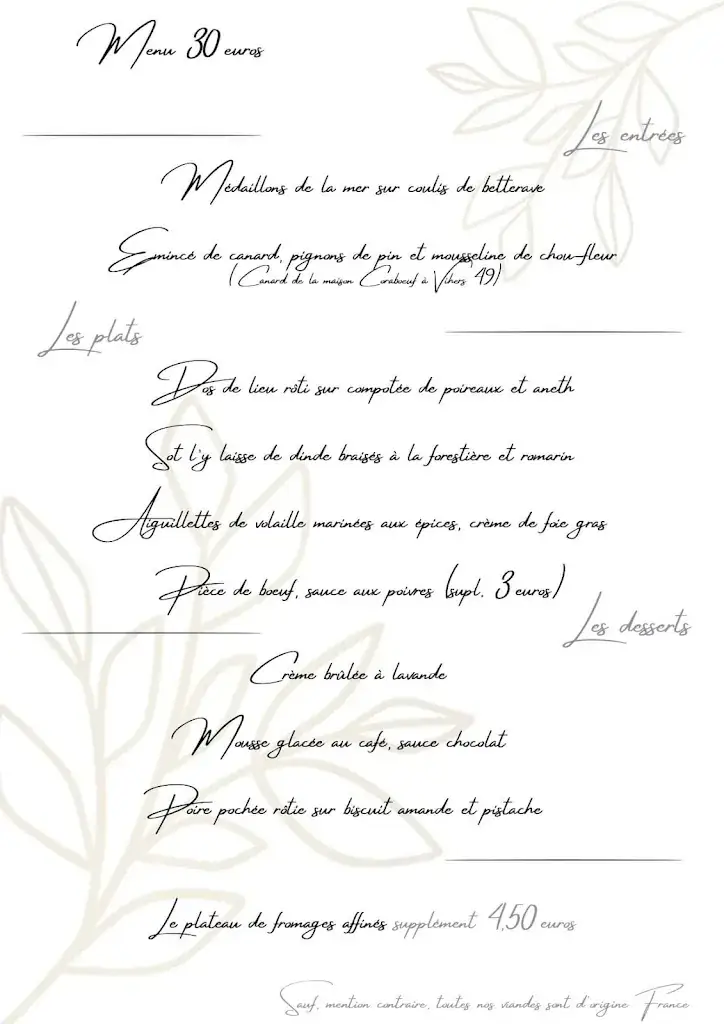 Menu 30 euros
Les entrées
Médaillons de la mer sur coulis de betterave
Emincé de canard, pignons de pin et mousseline de chou-fleur
(Canard de la maison Coraboeuf à Vihers 49)
Les plats
Dos de lieu rôti sur compotée de poireaux et aneth
Sot l'y laisse de dinde braisés à la forestière et romarin
Aiguillettes de volaille marinées aux épices, crème de foie gras
Pièce de boeuf, sauce aux poivres (supl. 3 euros)
Les desserts
Crème brûlée à lavande
Mousse glacée au café, sauce chocolat
Poire pochée rôtie sur biscuit amande et pistache
Le plateau de fromages affinés supplément 4,50 euros
Sauf, mention contraire, toutes nos viandes sont d'origine France